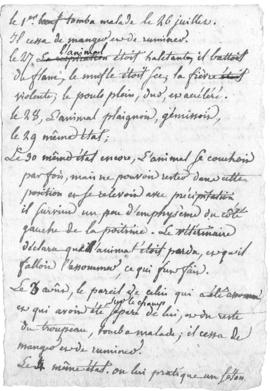 le 1er boeuf tomba malade le 26 juillet.
Il cessa de manger et de ruminer.
le 27, la respiration l'animal étoit haletant, il battoit
du flanc, le mufle étoit sec, la fièvre étoit
violente; le pouls plein, dur, et accéléré.
le 28, L'animal plaignoit, gémissoit,
le 29 même état;
Le 30 même état encore, L'animal se couchoit
parfois, mais ne pouvoit rester dans cette
position et se relevoit avec précipitation
il survint un peu d'emphysème du côté
gauche de la poitrine. Le vétérinaire
déclara que l'animal étoit perdu, et qu'il
falloit l'assommer, ce qui fut fait.
Le 3 août, le pareil de celui qui a été assommé
et qui avoit été séparé sur le champ de lui, et du reste
du troupeau, tomba malade; il cessa de
manger et de ruminer.
Le 4 même état. on lui pratiqua un séton